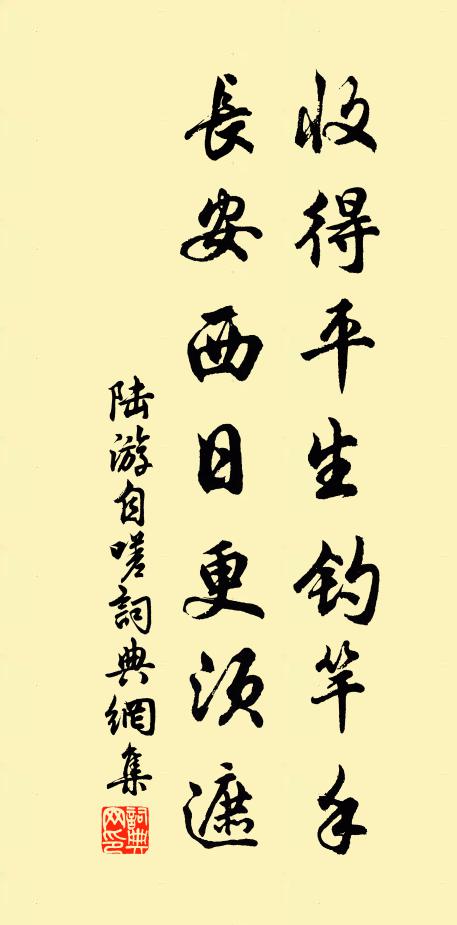 收得平生釣竿手
長安西日更須遮
陸游自嗟詞典網集
詞典網印